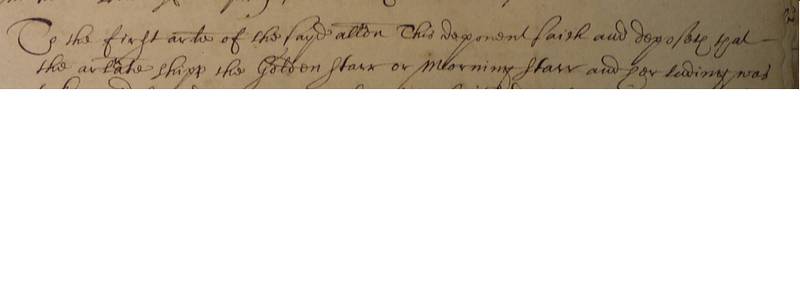 To the first arte of the sayd allon This deponent saith and deposeth that
the arlate shipp the Golden Starr or Morning Starr and her lading was